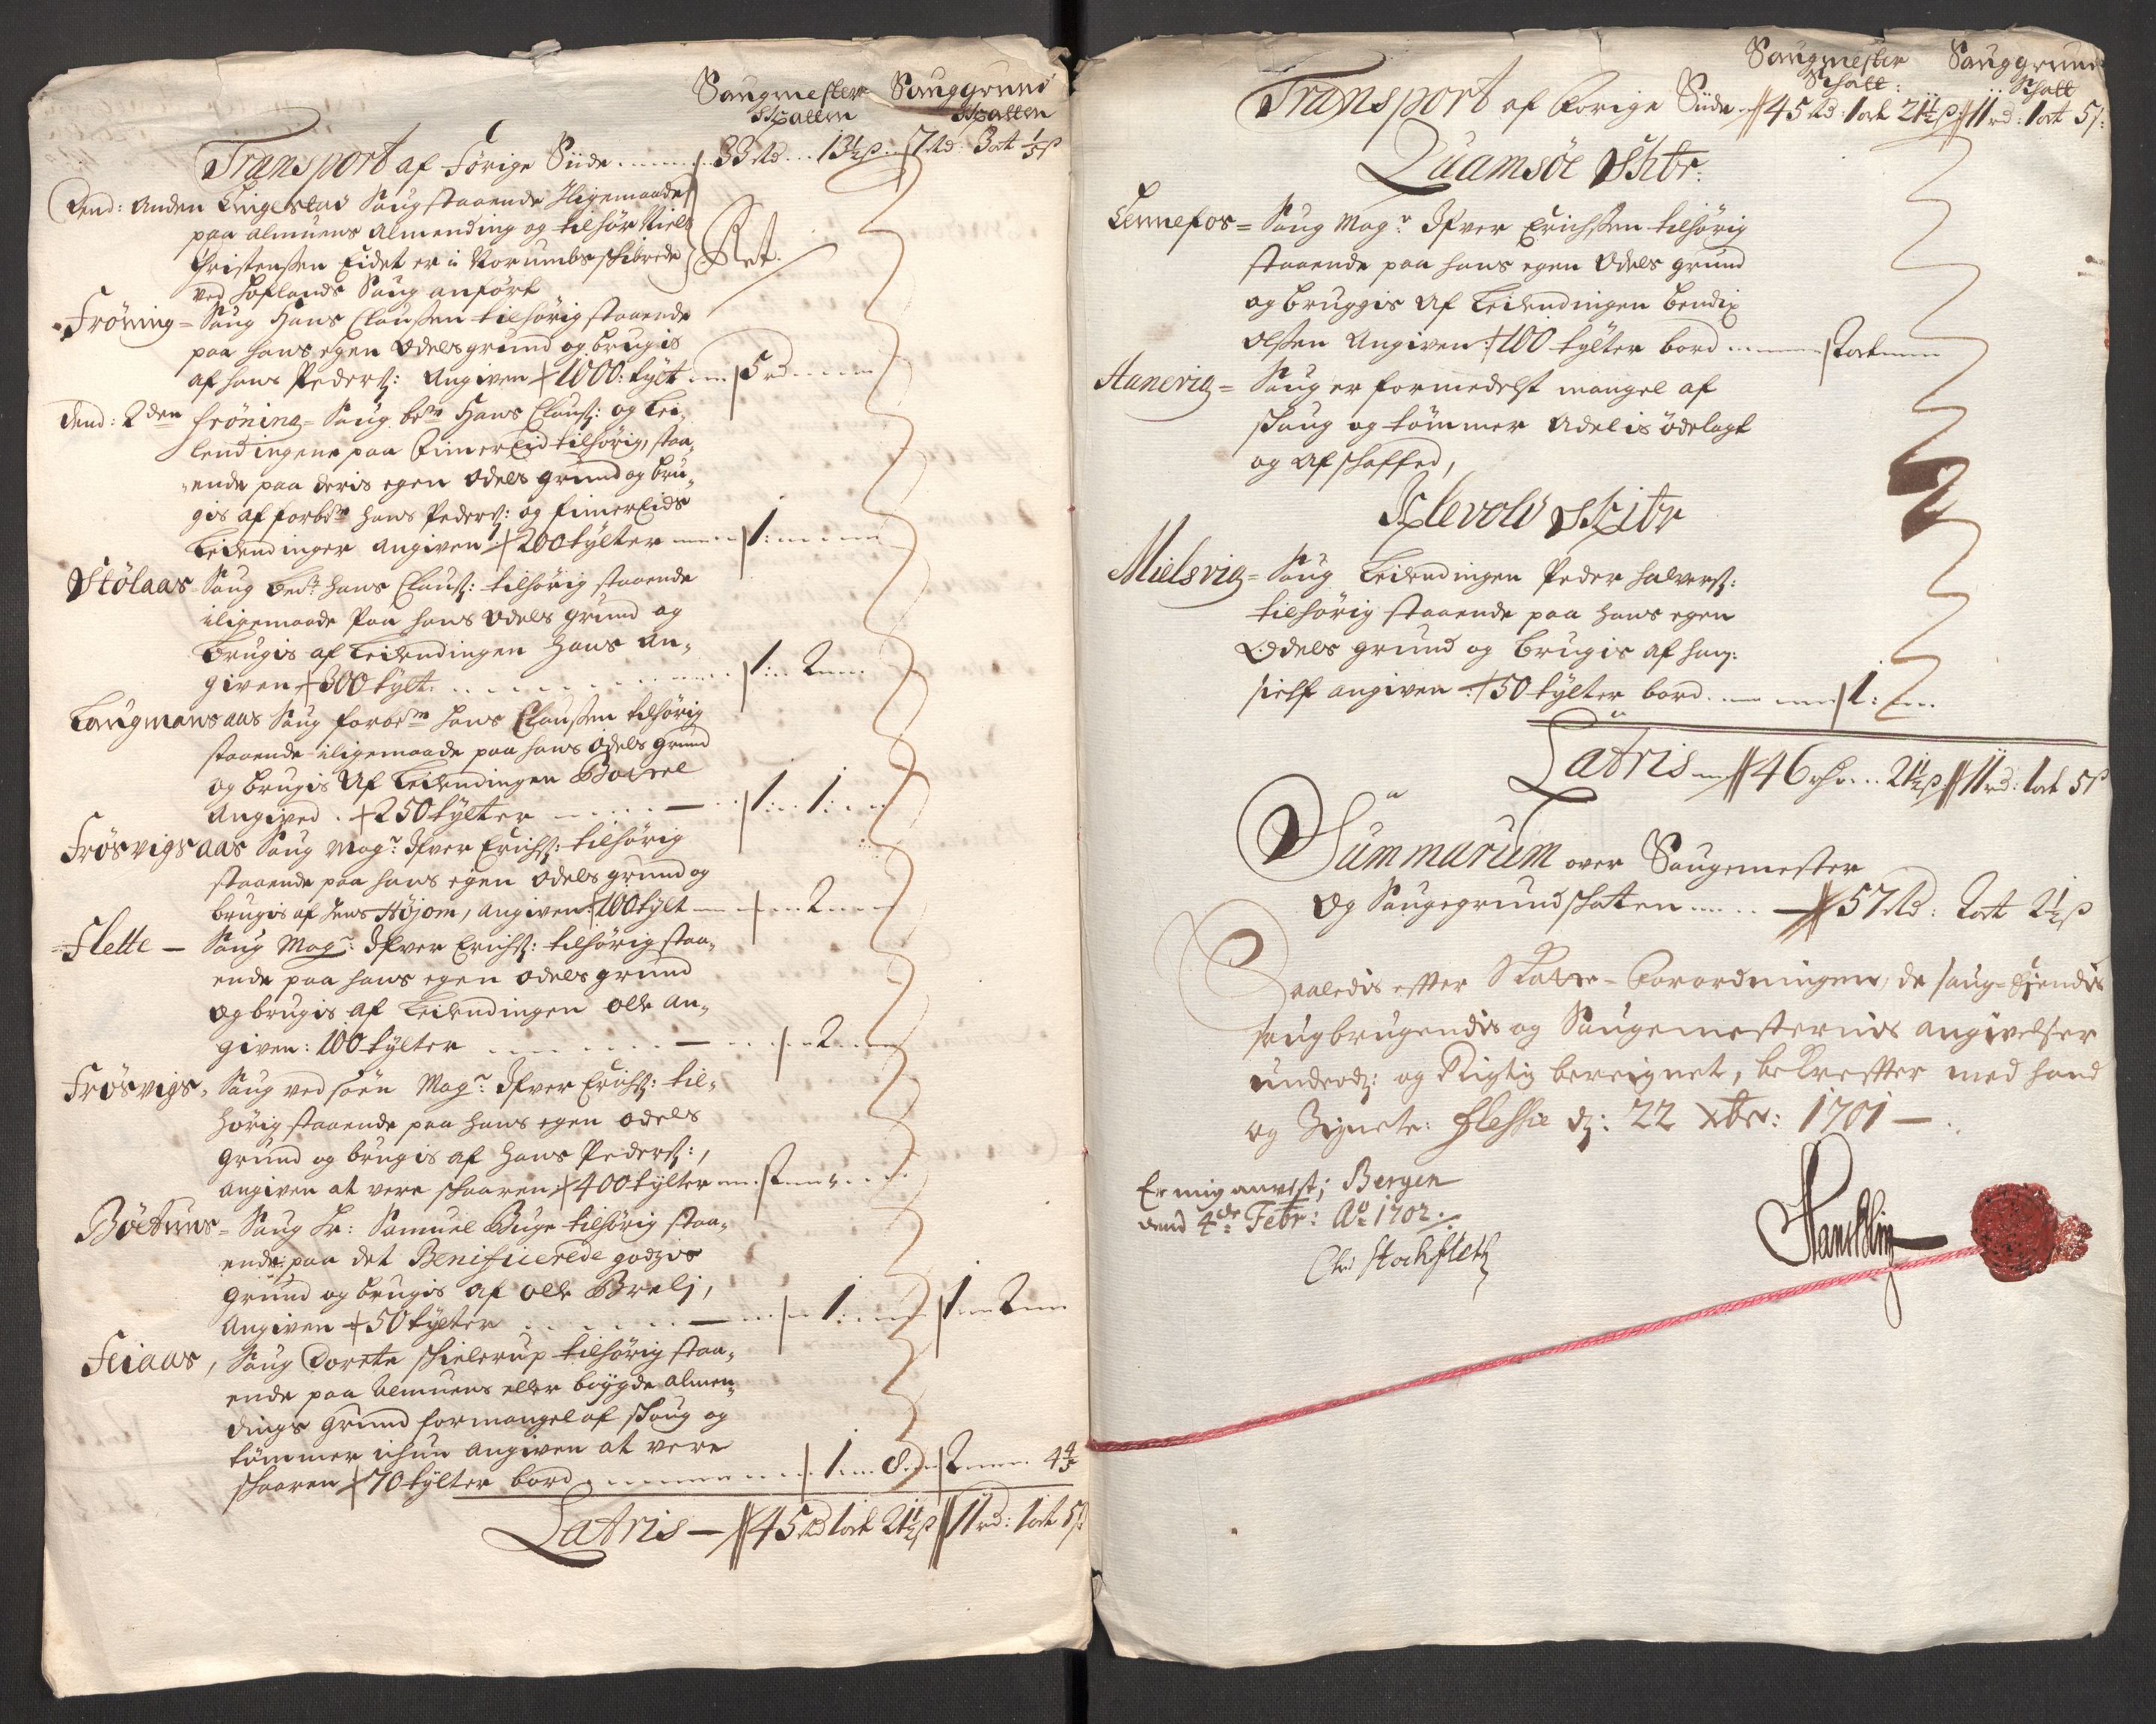 Saugmester Sauggrund
Skatten Skatten
Transport af Forige Siide 33 Rd 13½ ß 7 Rd: 3 ort ⅕ ß
Dend: Anden Lingestad Saug staaende Iligemaade
paa almuens Almending og tilhør Niels
Christensen Eidet er i Norumbs Schibrede
ved Hoflands Saug anført Ret.
Frøning= Saug Hans Claussen tilhørig staaende
paa hans egen Odels grund og brugis
af hans Peders: Angiven 1000: tylt 5 rd
Dend: 2den Frøning= Saug bete Hans Clauss: og Lei-
lendingene paa FimerEid tilhørig, staa-
ende paa deris egen Odels grund og bru-
gis af forbte Hans Peders: og FimerEids
Leilendinger angiven 200 tylter 1
Stølaas Saug bete Hans Clauss: tilhørig staaende
iligemaade Paa hans Odels grund og
brugis af Leilendingen Hans an-
given 300 tylt 1 2
Laugmans aas Saug forbte Hans Claussen tilhørig
staaende iligemaade paa hans Odels grund
og brugis Af Leilendingen
Angived 250 tylter 1 1
Frøsvigs aas Saug Magr Ifver Erichs: tilhørig
staaende paa hans egen Odels grund og
brugis af Jens Højom, angiven 100 tylt 2
Flette Saug Magr Ifver Erichs: tilhørig staa-
ende paa hans egen Odels grund
og brugis af Leilendingen Olle an-
given: 100 tylter 2
Frøsvigs, Saug ved Søen Magr Ifver Erichs: til-
hørig staaende paa hans egen Odels
Grund og brugis af Hans Peders:,
angiven at vere skaaren 400 tylter 2
Bøetuns= Saug Hr: Samuel Buge tilhørig staa-
ende paa det Benificerede godzis
Grund og brugis af Olle Brelj,
Angiven 50 tylter 1 1 2
Feiaas, Saug Dorete Schielerup tilhørig staa-
ende paa Almuens eller bøygde almen-
dings Grund formangel af skoug og
tømmer ichun angiven at vere
skaaren 70 tylter bord 1 8 2 4⅘
Lateris 45 Rd 1 ort 21½ ß 11 rd: 1 ort 5 ß
Saugmester Sauggrund
Schatt: Schatt
Transport af Forige Siide 45 Rd: 1 ort 21½ ß 11 rd: 1 ort 5 ß
Quamsøe Schbr.
Lennefos= Saug Magr Ifver Erichssen tilhørig
staaende paa hans egen Odels grund
og bruggis Af Leilendingen Bendix
Olsen Angiven 100 tylter bord
Aanevig= Saug er formedelst mangel af
skaug og tømmer Adelis ødelagt
og Afschaffed,
Klevold Skibr
Mielsvig= Saug Leilendingen Peder Halvers:
tilhørig staaende paa hans egen
Odels grund og brugis af ham
sielf angiven 50 tylter bord 1
Lateris 46 21½ ß 11 rd: 1 ort 5 ß
Summarum over Saugemester
Og Saugegrund Skatten 57 Rd: 2 ort 2½ ß
Saaledis efter Skatte-Forordningen, de Saug-Eiendis
Saugbrugendis og Saugemesternis angivelser
underd: og Rigtig bereignet, bekrefter med haand
og Zignete: Flesche d: 22 Xbr: 1701
Er mig anvist; Bergen
dend 4de Febr: Ao 1702.
Chr Stockfleth